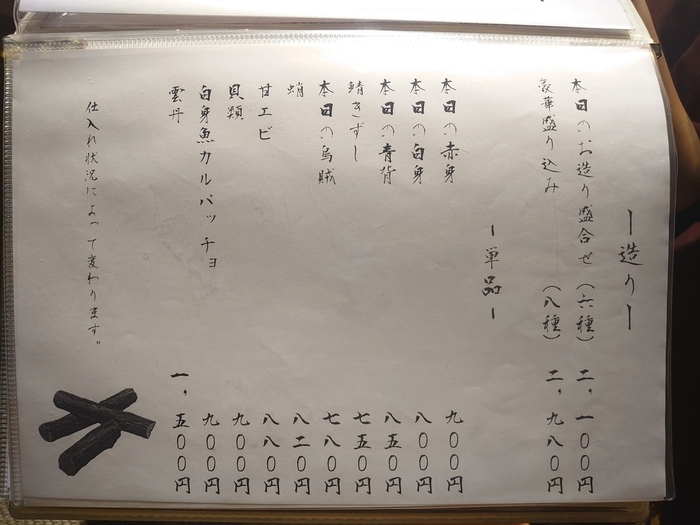 ー造りー
本日のお造り盛合せ（六種）二，一〇〇円
豪華盛り込み（八種）二，九八〇円
ー単品ー
本日の赤身 九〇〇円
本日の白身 八〇〇円
本日の青背 八五〇円
鯖きずし 七五〇円
本日の烏賊 七八〇円
蛸 八二〇円
甘エビ 八八〇円
貝類 九〇〇円
白身魚カルパッチョ 九〇〇円
雲丹 一，五〇〇円
仕入れ状況によって変わります。